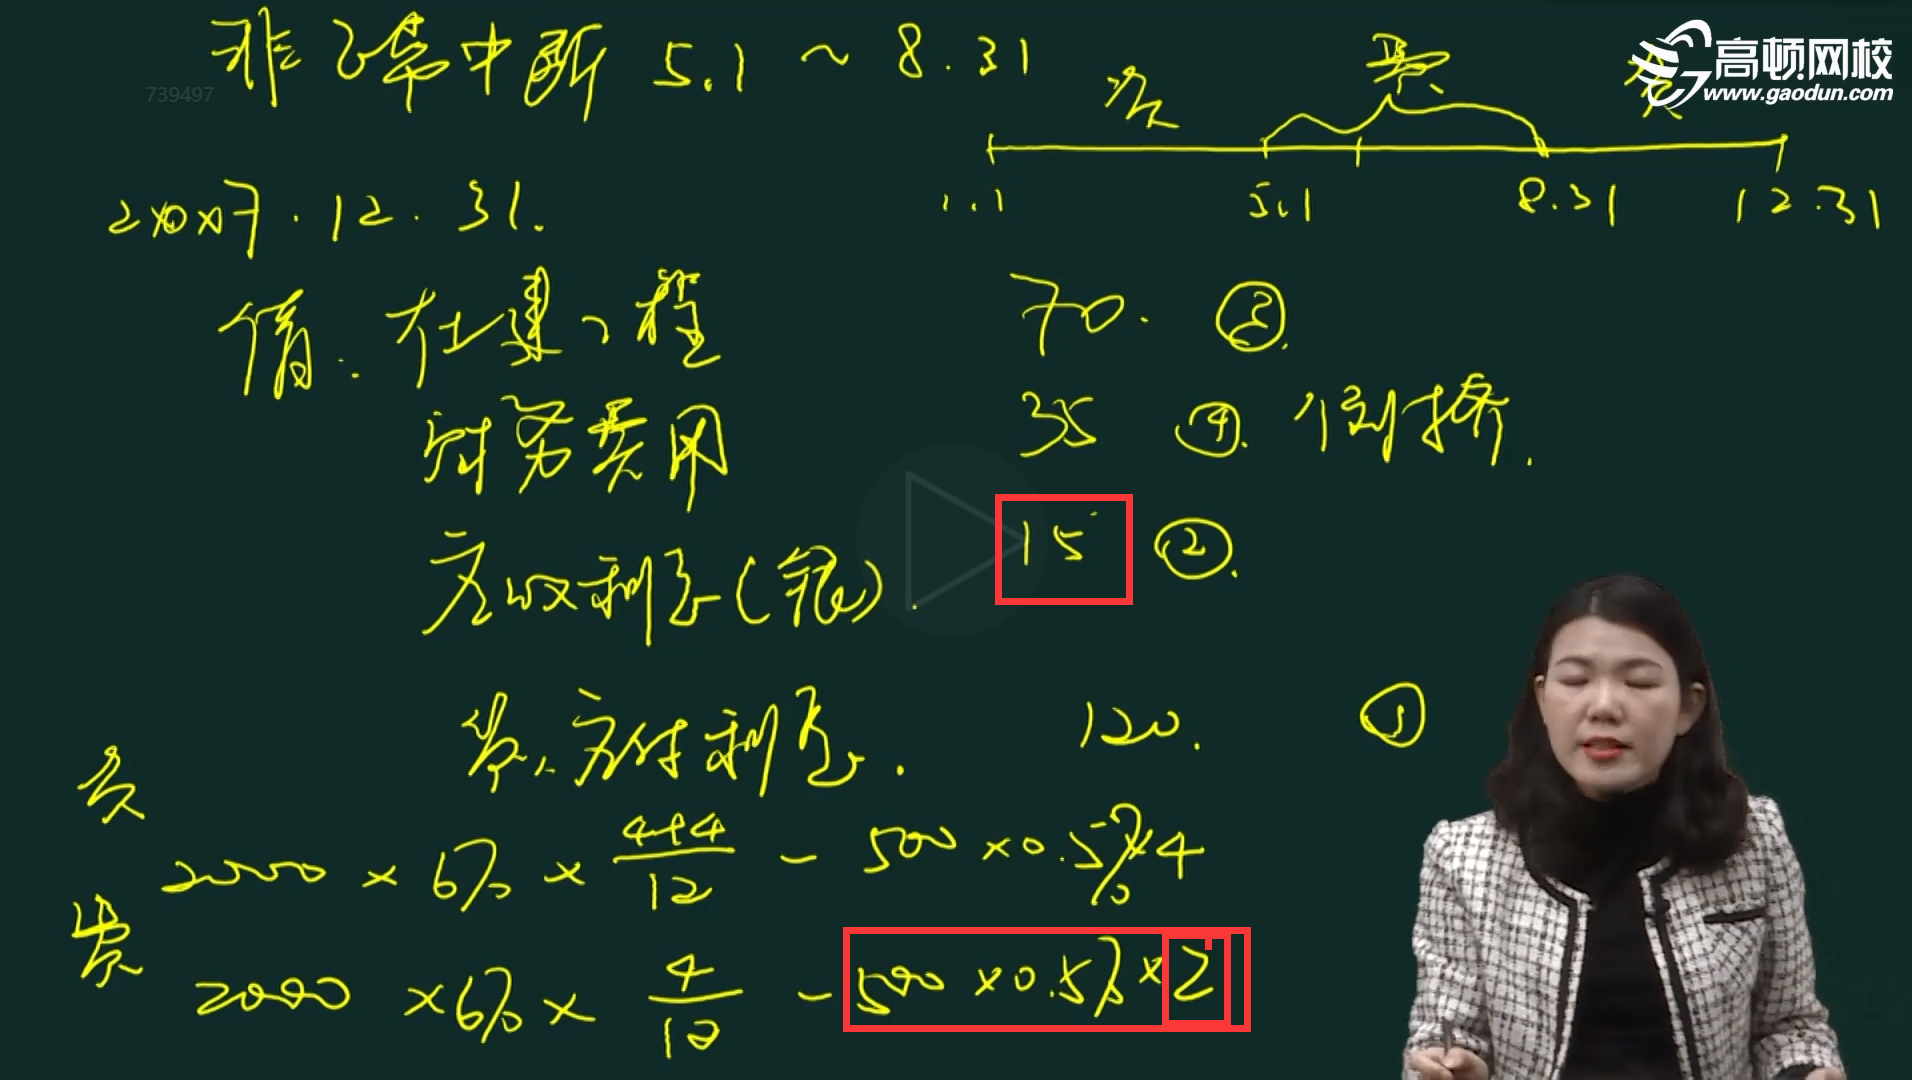 非正常中断 5.1 ~ 8.31
739497
高顿网校
www.gaodun.com
资 费 资
1.1 5.1 8.31 12.31
20×7.12.31.
借:在建工程 70. ③.
财务费用 35 ④. 倒挤.
应收利息(银). 15 ②.
贷:应付利息. 120. ①
资 2000 × 6% × 4+4/12 - 500 × 0.5% × 4
费 2000 × 6% × 4/12 - 500 × 0.5% × 2